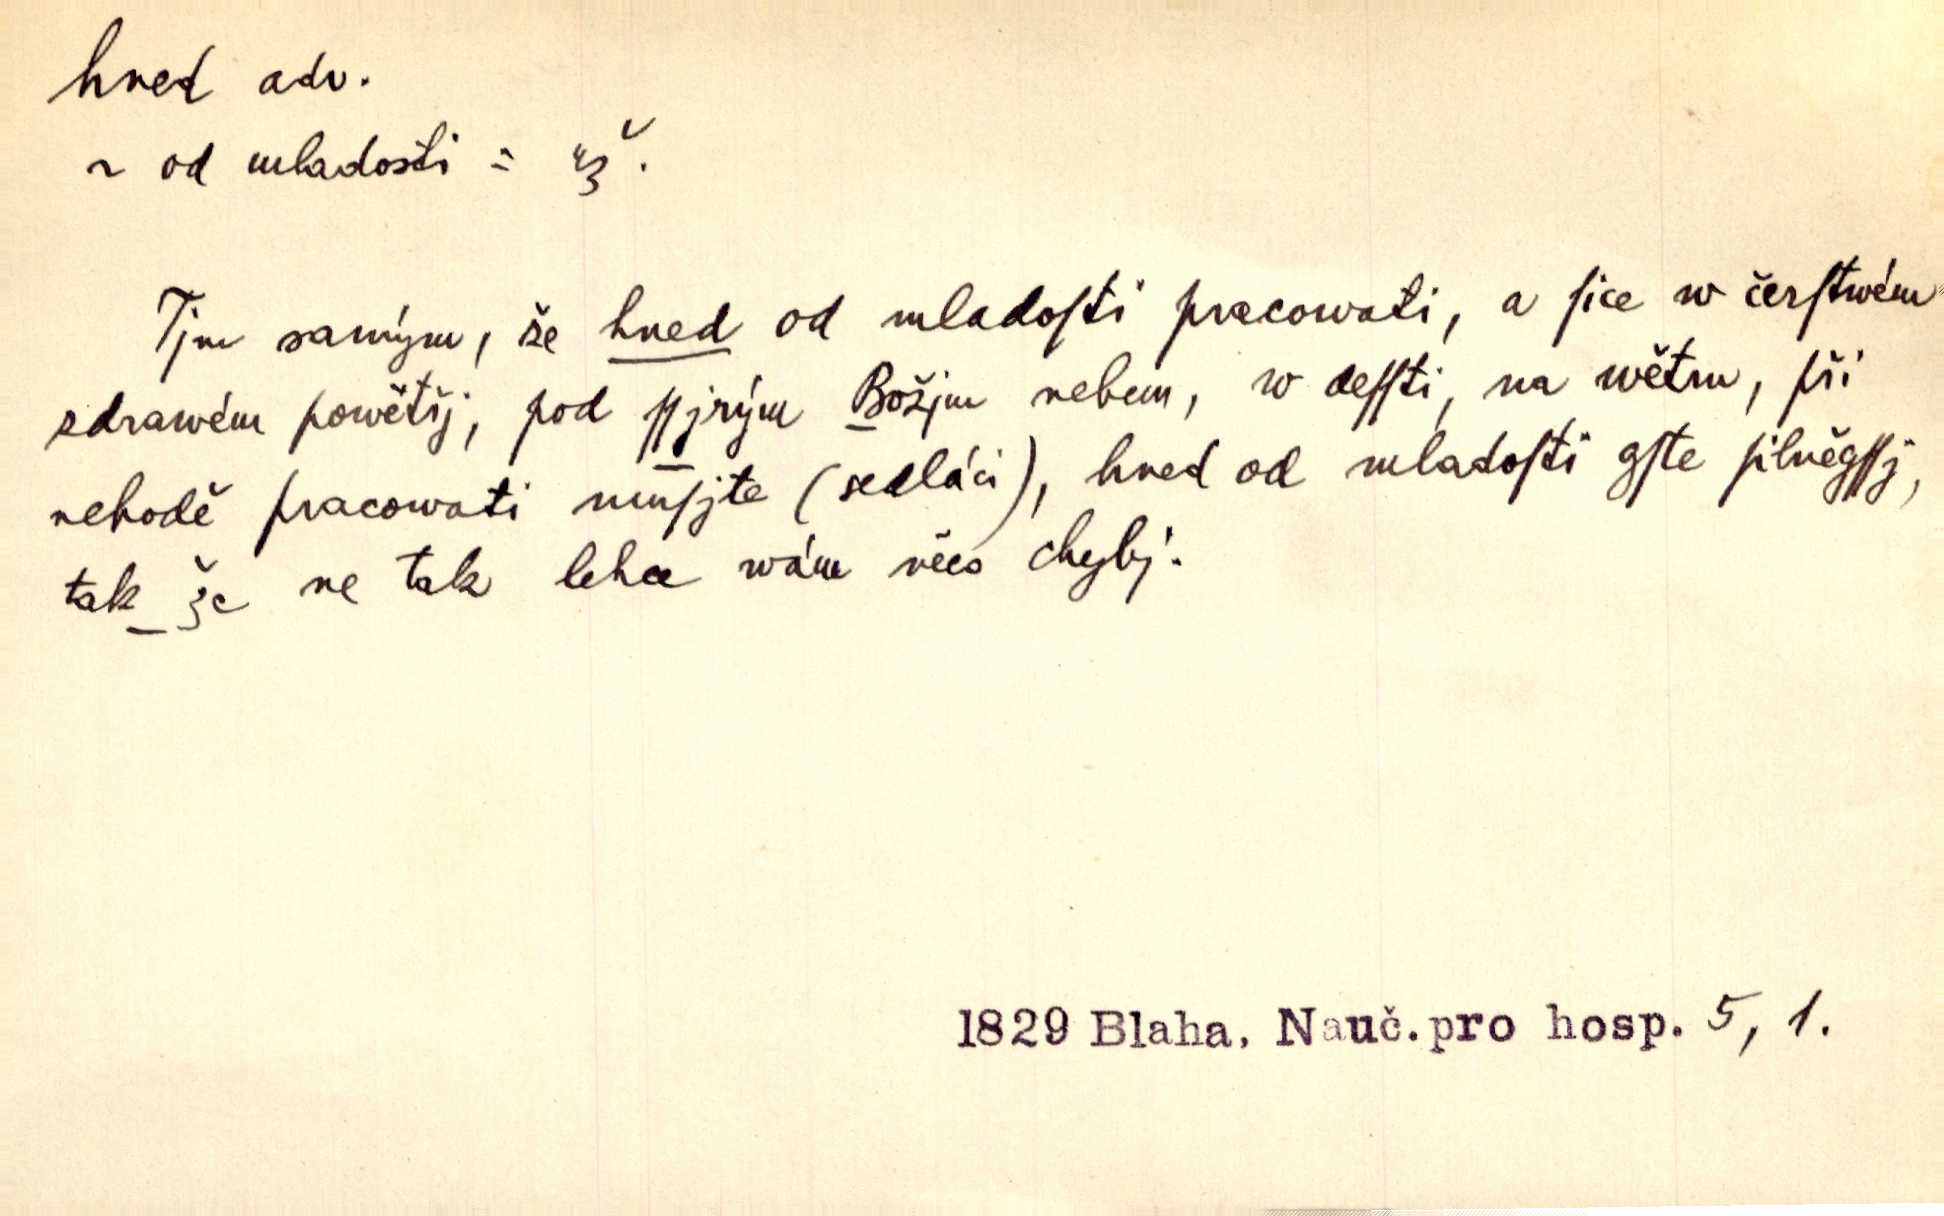 hned adv.
~ od mladosti = už.
Tjm samým, že hned od mladoſti pracowati, a ſice w čerſtwém
zdrawém powětřj, pod ſſjrým Božjm nebem, w deſſti, na wětru, při
nehodě pracowati muſjte (sedláci), hned od mladoſti gſte ſilněgſſj,
tak že ne tak lehce wám něco chybj.
1829 Blaha, Nauč. pro hosp. 5, 1.